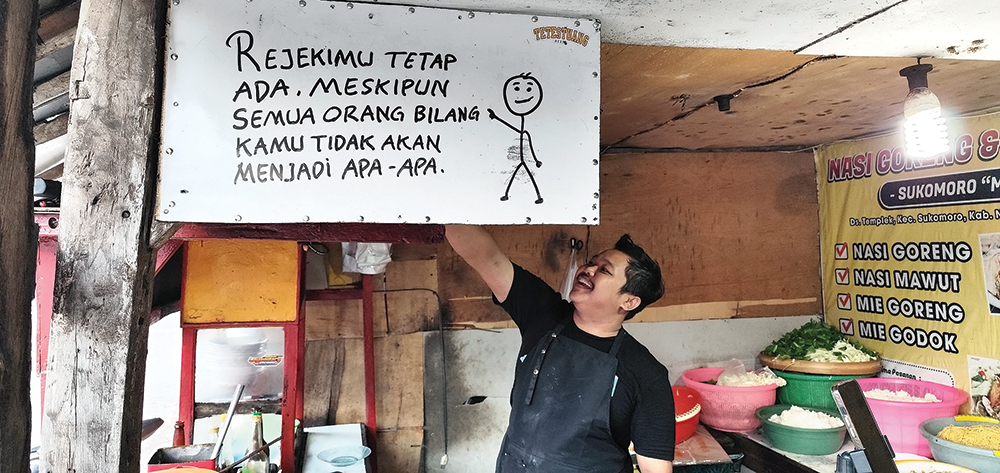 TETESTUANG
REJEKIMU TETAP
ADA. MESKIPUN
SEMUA ORANG BILANG
KAMU TIDAK AKAN
MENJADI APA-APA.
NASI GORENG &
- SUKOMORO "M
Ds. Templek, Kec. Sukomoro, Kab. N
NASI GORENG
NASI MAWUT
MIE GORENG
MIE GODOK
Pesanan :